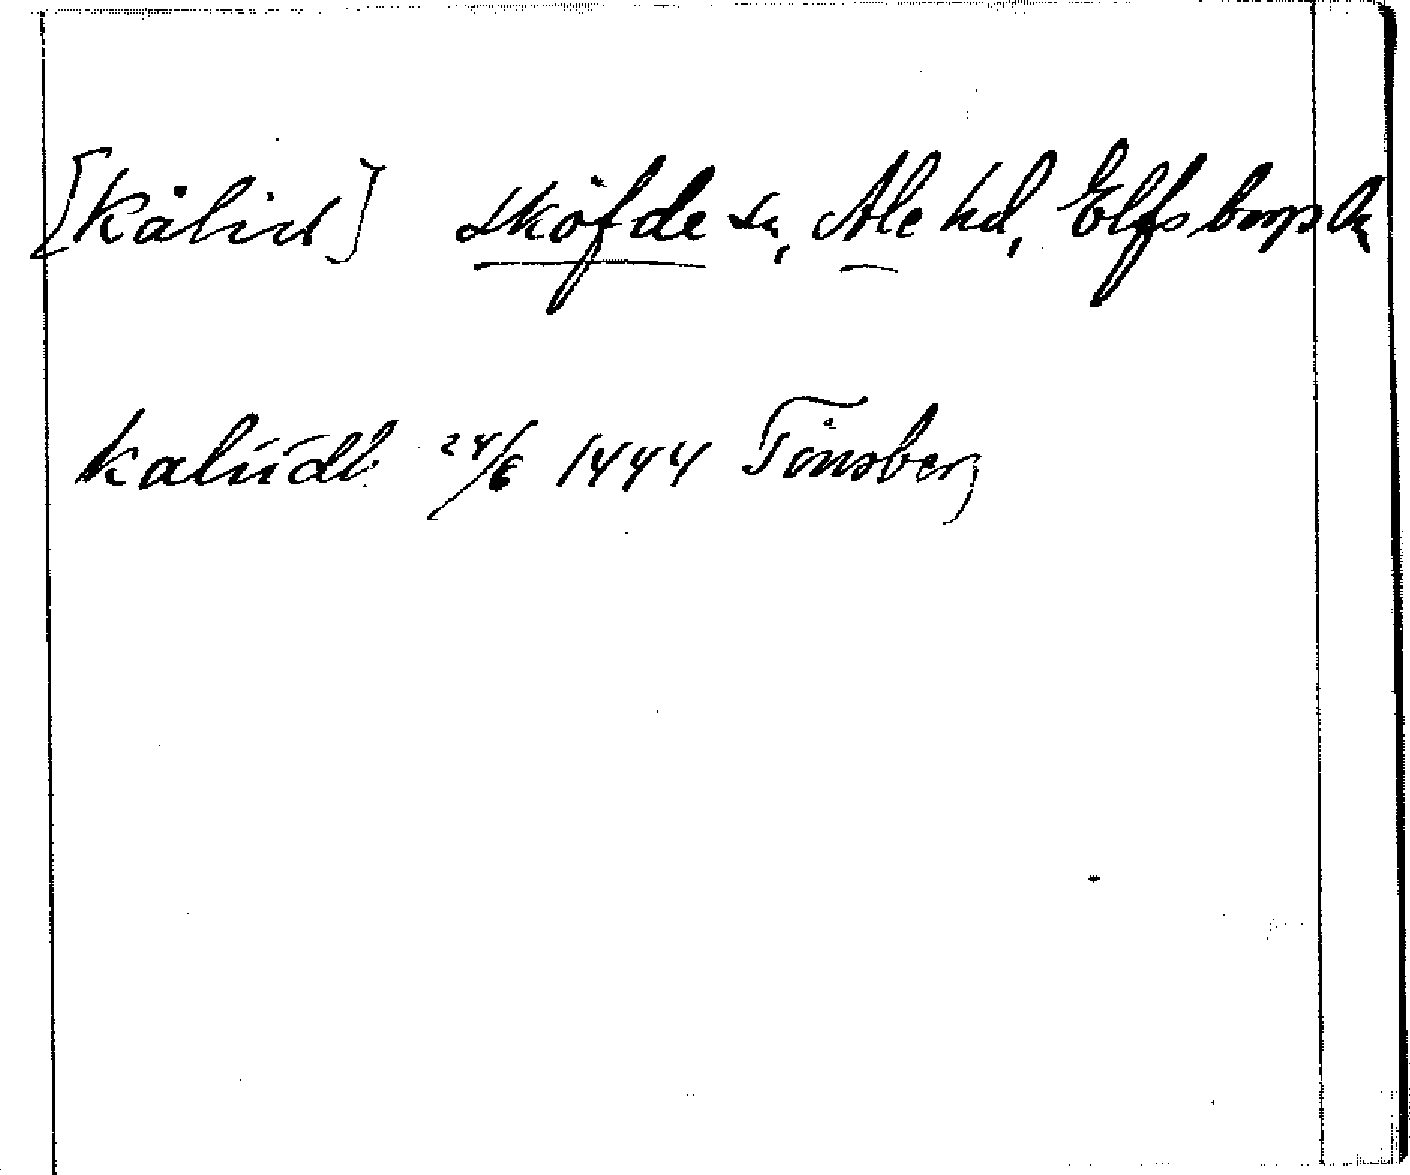 [Kålid] Sköfde sn, Ale hd, Elfsborgs l.
kaliidh 24/6 1444 Tönsberg